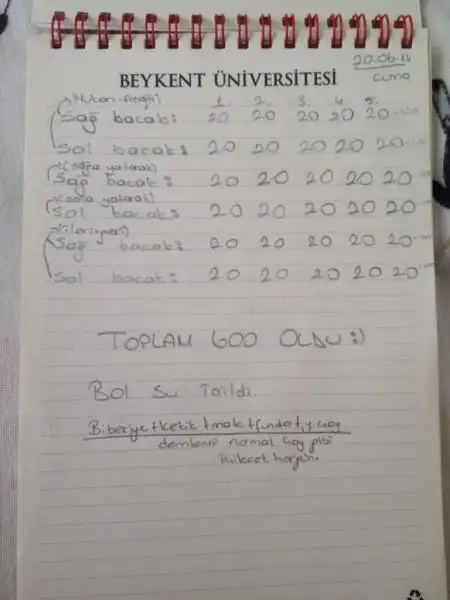 20.06.14
Cuma
BEYKENT ÜNİVERSİTESİ
1. 2. 3. 4. 5.
Sağ bacak: 20 20 20 20 20
Sol bacak: 20 20 20 20 20
(sağa yatarak)
Sağ bacak: 20 20 20 20 20
(sola yatarak)
Sol bacak: 20 20 20 20 20
Sağ bacak: 20 20 20 20 20
Sol bacak: 20 20 20 20 20
TOPLAM 600 OLDU :)
Bol Su
Biberiye+kekik+
demlenip normal çay gibi